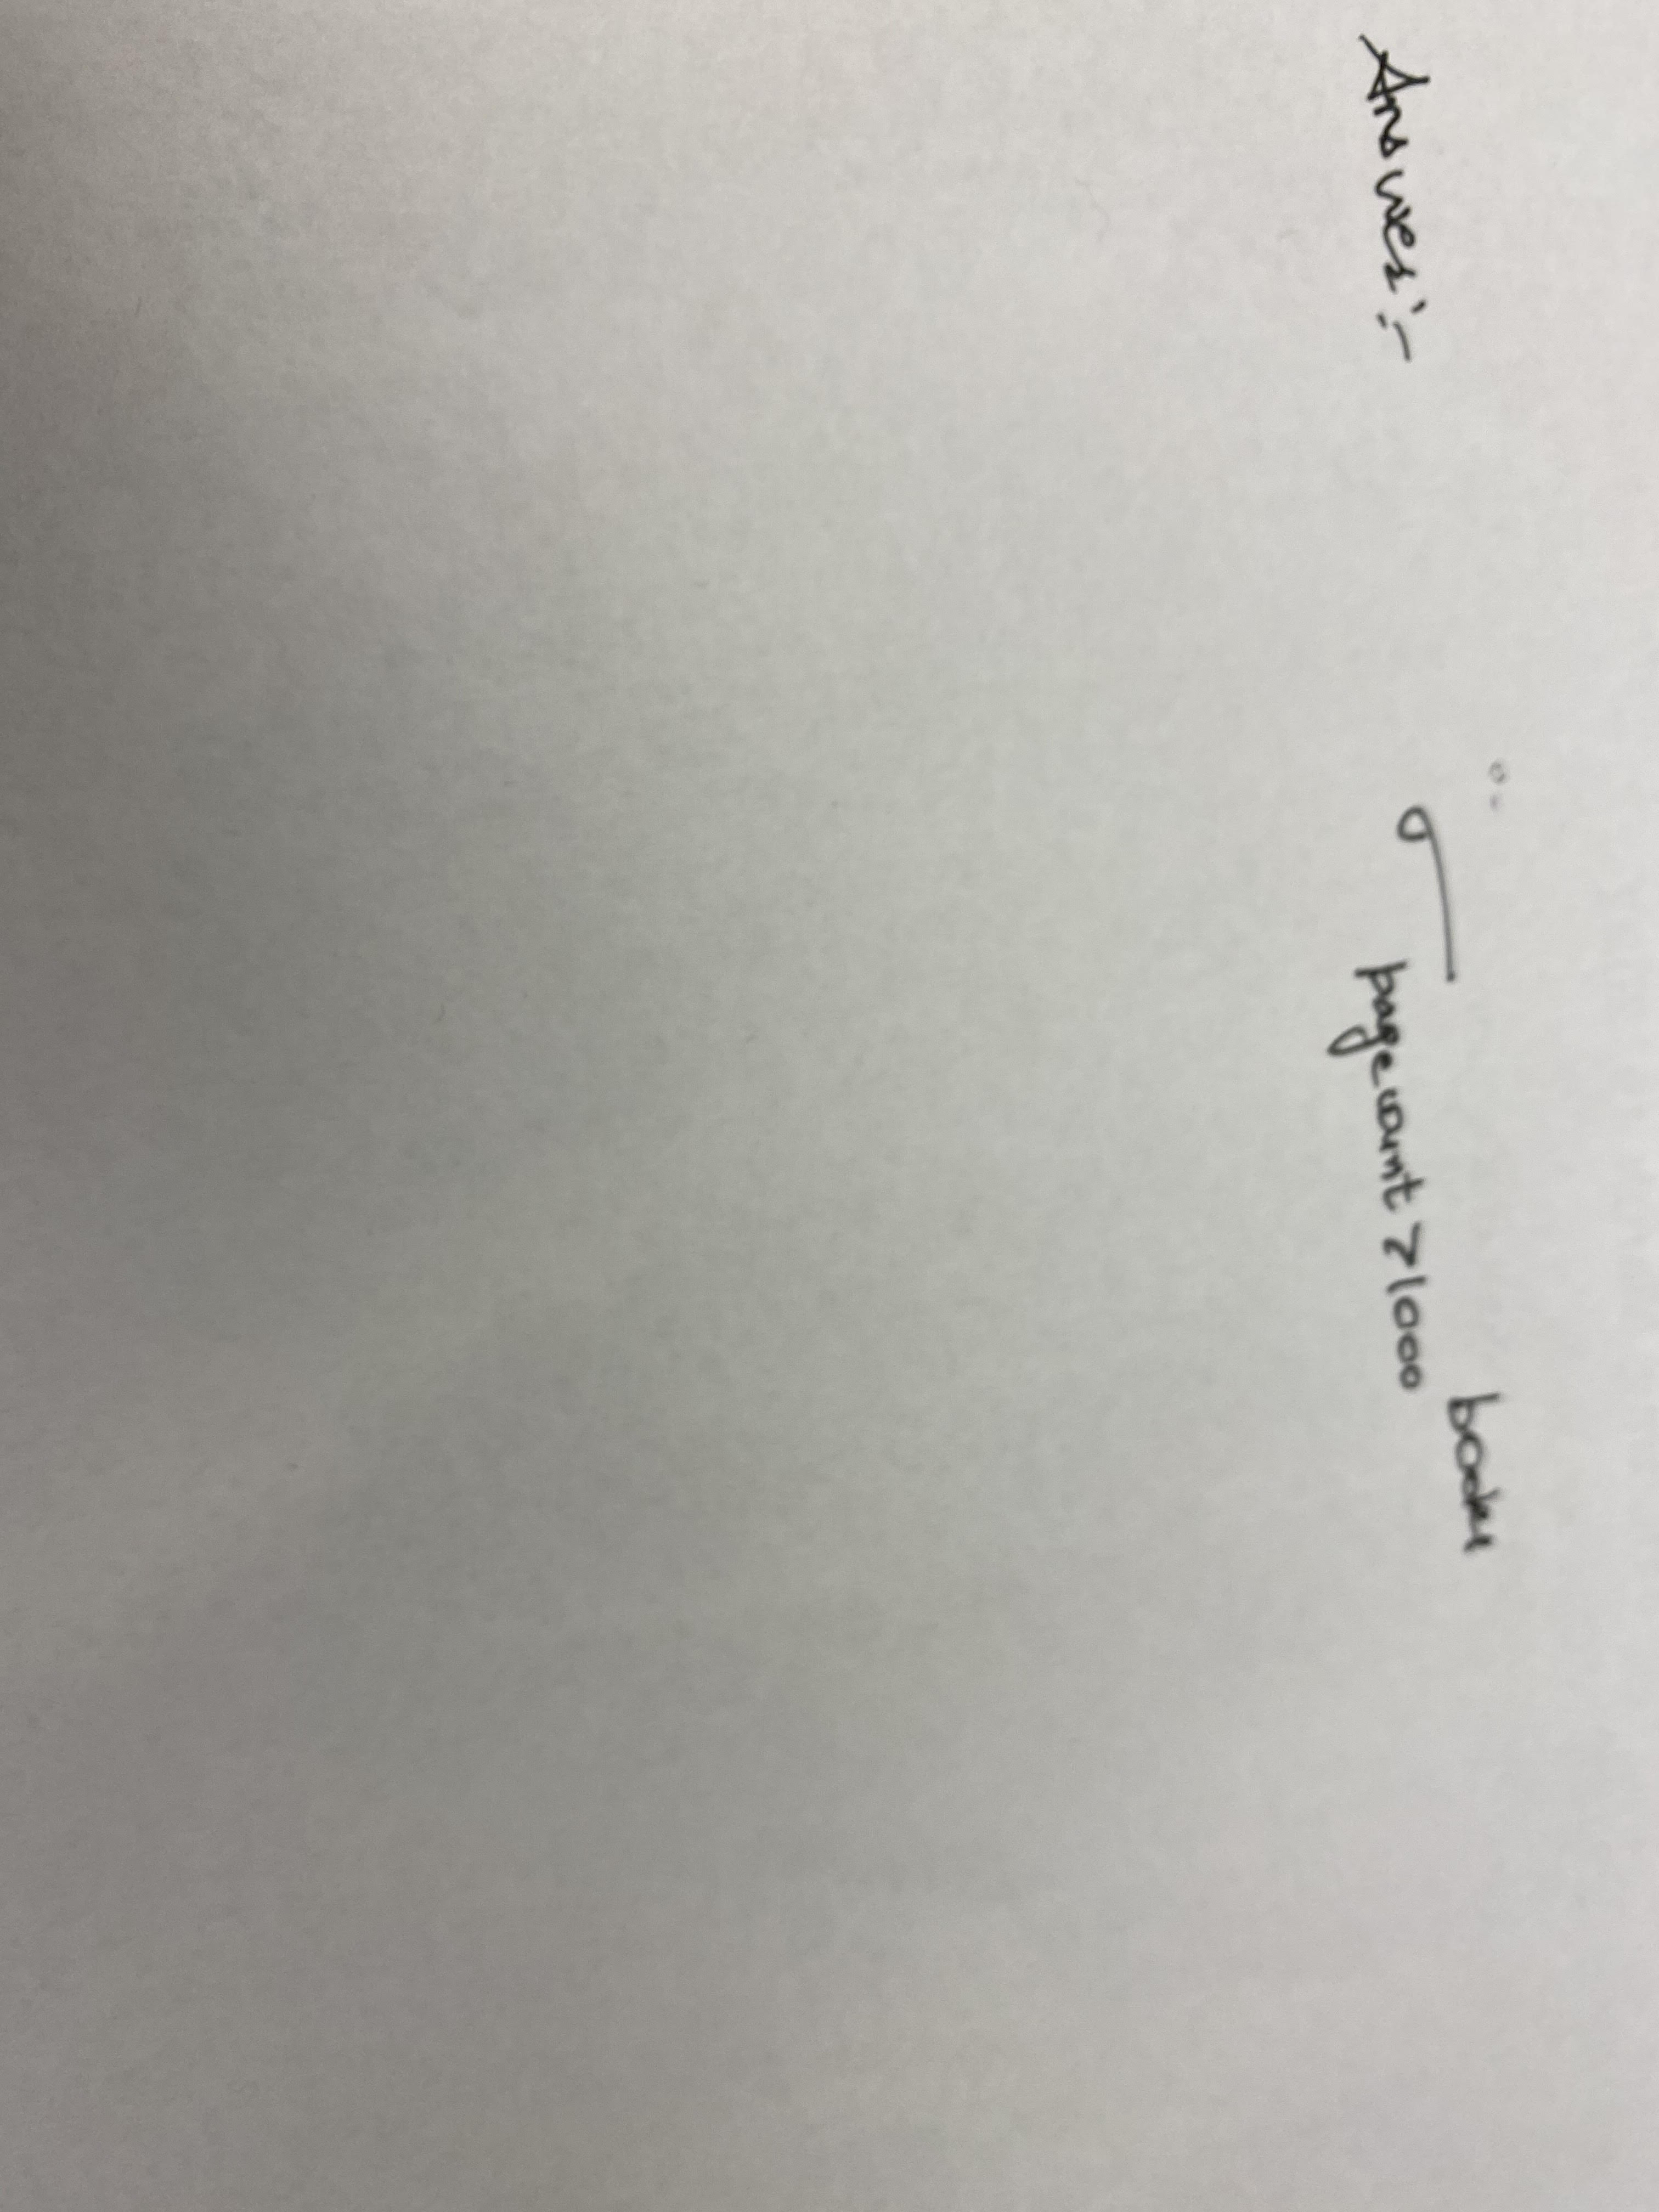 Answer:-
σ pagecount >1000 books